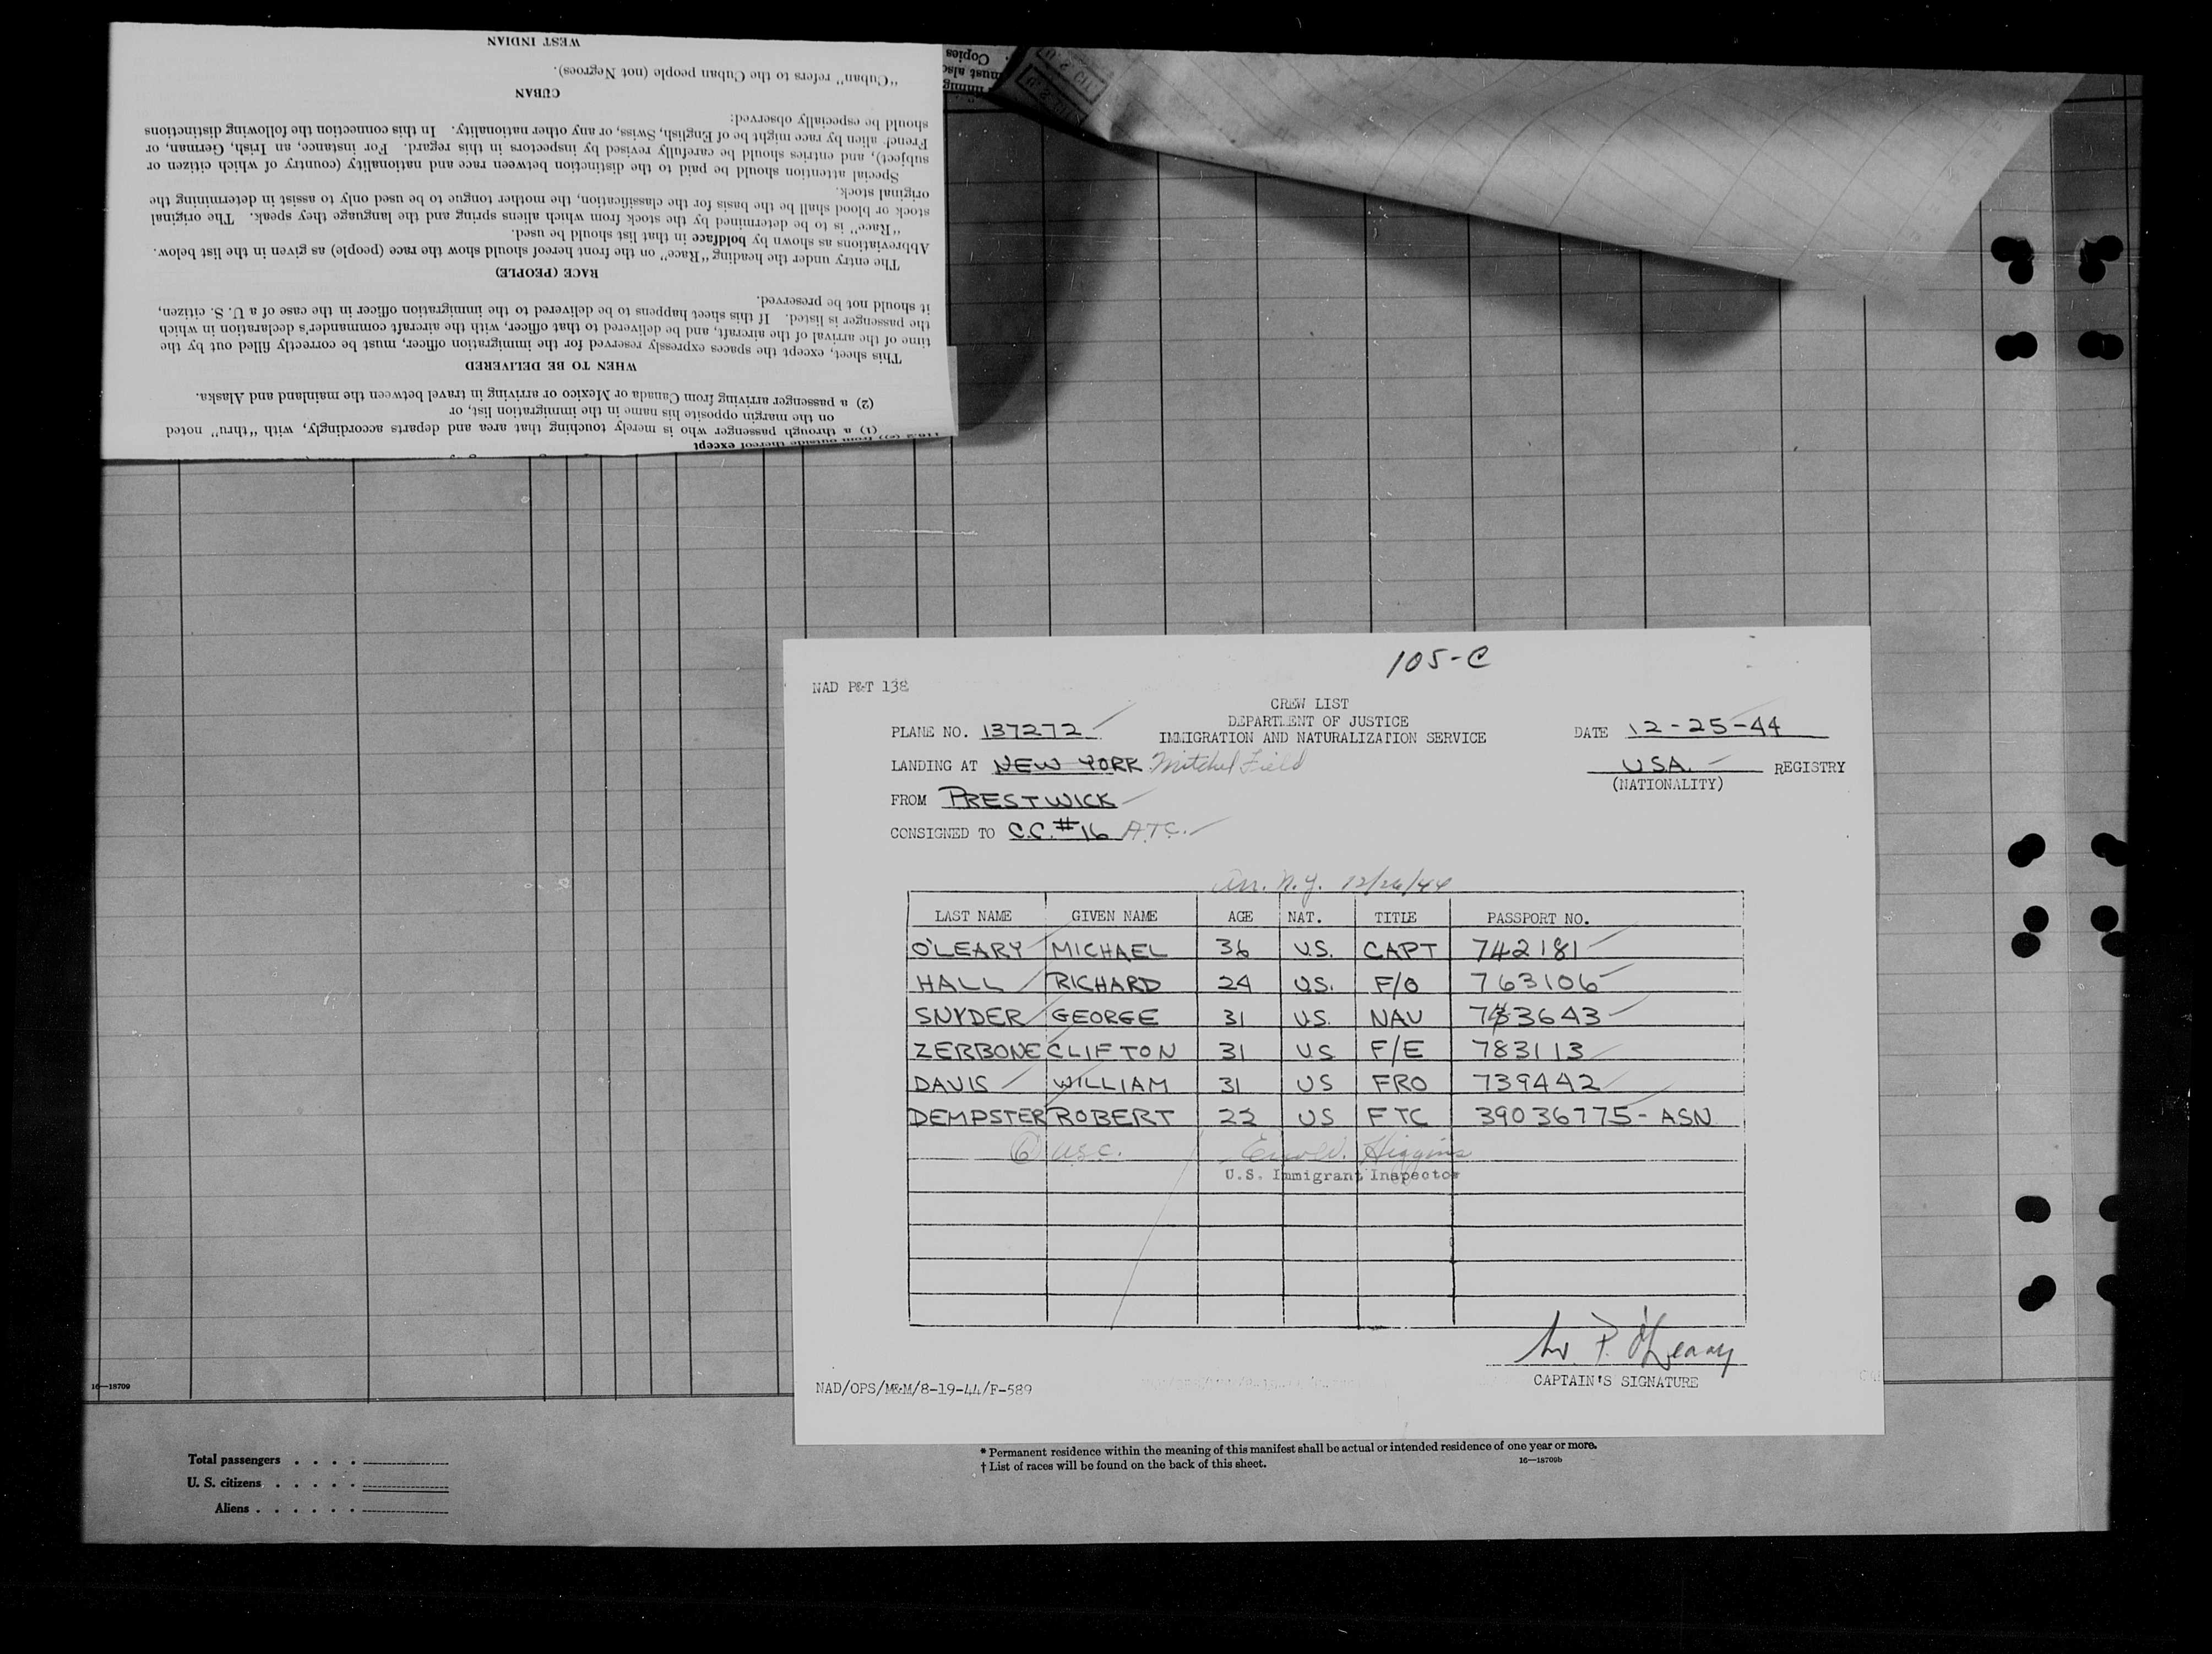 WEST INDIAN
"Cuban" refers to the Cuban people (not Negroes).
CUBAN
should be especially observed:
French alien by race might be of English, Swiss, or any other nationality. In this connection the following distinctions
subject), and entries should be carefully revised by inspectors in this regard. For instance, an Irish, German, or
Special attention should be paid to the distinction between race and nationality (country of which citizen or
original stock.
stock or blood shall be the basis for the classification, the mother tongue to be used only to assist in determining the
"Race" is to be determined by the stock from which aliens spring and the language they speak. The original
Abbreviations as shown by boldface in that list should be used.
The entry under the heading "Race" on the front hereof should show the race (people) as given in the list below.
RACE (PEOPLE)
it should not be preserved.
the passenger is listed. If this sheet happens to be delivered to the immigration officer in the case of a U. S. citizen,
time of the arrival of the aircraft, and be delivered to that officer, with the aircraft commander's declaration in which
This sheet, except the spaces expressly reserved for the immigration officer, must be correctly filled out by the
WHEN TO BE DELIVERED
(2) a passenger arriving from Canada or Mexico or arriving in travel between the mainland and Alaska.
on the margin opposite his name in the immigration list, or
(1) a through passenger who is merely touching that area and departs accordingly, with "thru" noted
from outside thereof except
Copies
must also
105-C
NAD P&T 138
CREW LIST
DEPARTMENT OF JUSTICE
IMMIGRATION AND NATURALIZATION SERVICE
PLANE NO. 137272
DATE 12-25-44
LANDING AT NEW YORK Mitchel Field
USA. REGISTRY
(NATIONALITY)
FROM PRESTWICK
CONSIGNED TO C.C. #16 A.T.C.
Arr. N.Y. 12/26/44
LAST NAME GIVEN NAME AGE NAT. TITLE PASSPORT NO.
O'LEARY MICHAEL 36 U.S. CAPT 742181
HALL RICHARD 24 U.S. F/O 763106
SNYDER GEORGE 31 U.S. NAV
ZERBONE CLIFTON 31 U.S F/E 783113
DAVIS WILLIAM 31 US FRO 739442
DEMPSTER ROBERT 22 US FTC 39036775- ASN
6 USC. Higgins
U.S. Immigrant Inspector
P. O'Leary
CAPTAIN'S SIGNATURE
NAD/OPS/M&M/8-19-44/F-589
16—18709
Total passengers . . . .
U. S. citizens . . . . .
Aliens . . . . . .
* Permanent residence within the meaning of this manifest shall be actual or intended residence of one year or more.
† List of races will be found on the back of this sheet.
16—18709b